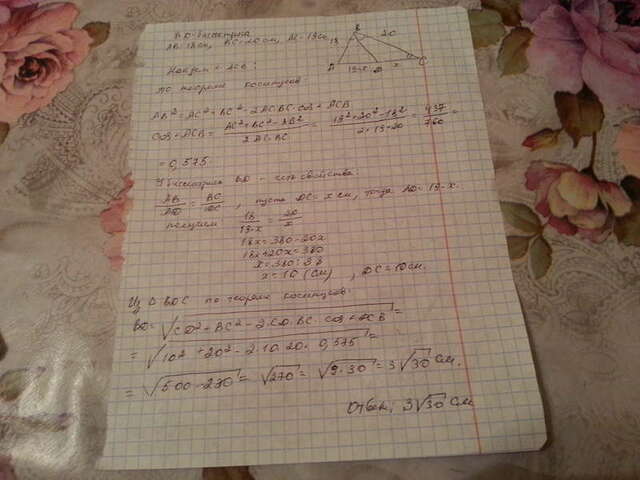 BD - биссектриса
AB = 18 см, BC = 20 см, AC = 19 см.
B
18
20
A
19-x
D
x
C
Найдем ∠ ACB:
По теореме косинусов:
AB² = AC² + BC² - 2AC·BC·cos∠ACB
cos∠ACB = (AC² + BC² - AB²) / (2AC·BC) = (19² + 20² - 18²) / (2·19·20) = 437/760 =
= 0,575
У биссектрисы BD - есть свойства:
AB/AD = BC/DC, пусть DC = x см, тогда AD = 19-x.
получим 18/(19-x) = 20/x
18x = 380-20x
18x+20x = 380
x = 380:38
x = 10 (см), DC = 10 см.
Из Δ BDC по теореме косинусов:
BD = √(CD² + BC² - 2·CD·BC·cos∠ACB) =
= √(10² + 20² - 2·10·20·0,575) =
= √(500-230) = √270 = √(9·30) = 3√30 см.
Ответ: 3√30 см